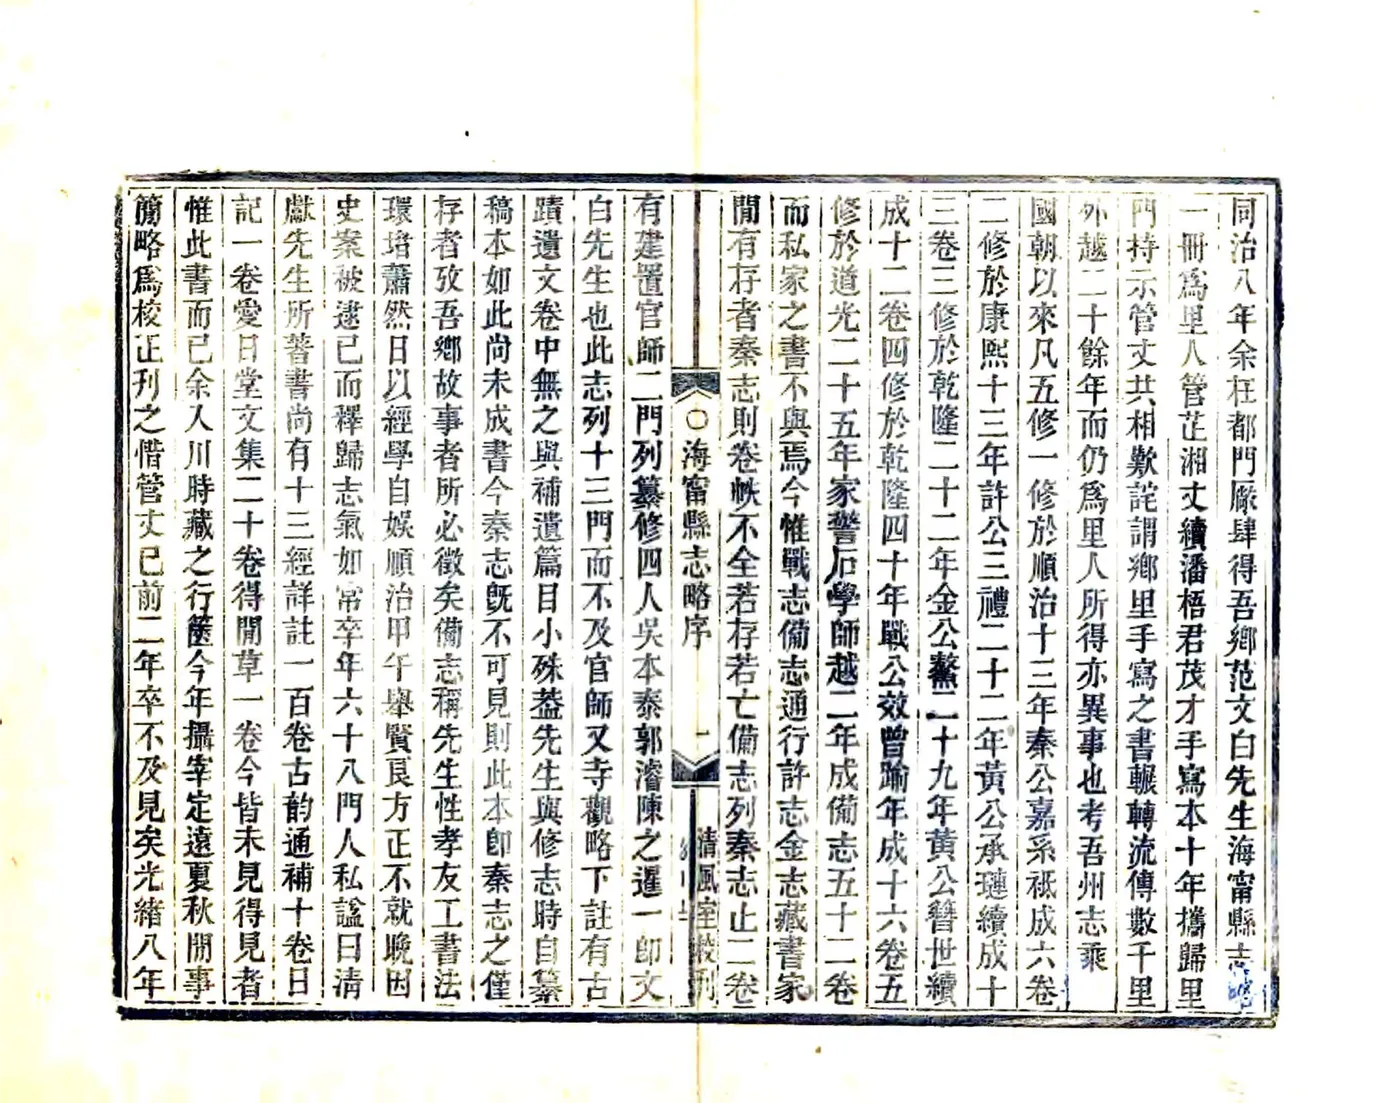 同治八年余在都門廠肆得吾鄉范文白先生海甯縣志
一冊爲里人管芷湘丈續潘梧君茂才手寫本十年攜歸里
門持示管丈共相歎詫謂鄉里手寫之書輾轉流傳數千里
外越二十餘年而仍爲里人所得亦異事也考吾州志乘
國朝以來凡五修一修於順治十三年秦公嘉系祗成六卷
二修於康熙十三年許公三禮二十二年黃公承璉續成十
三卷三修於乾隆二十二年金公鰲二十九年黃公簪世續
成十二卷四修於乾隆四十年戰公效曾踰年成十六卷五
修於道光二十五年家警石學師越二年成備志五十二卷
而私家之書不與焉今惟戰志備志通行許志金志藏書家
閒有存者秦志則卷帙不全若存若亡備志列秦志止二卷
海甯縣志略序
一
清風室校刊
有建置官師二門列纂修四人吳本泰郭濬陳之暹一卽文
白先生也此志列十三門而不及官師又寺觀略下註有古
蹟遺文卷中無之與補遺篇目小殊葢先生與修志時自纂
稿本如此尚未成書今秦志旣不可見則此本卽秦志之僅
存者攷吾鄉故事者所必徵矣備志稱先生性孝友工書法
環堵蕭然日以經學自娛順治甲午舉賢良方正不就晚因
史案被逮已而釋歸志氣如常卒年六十八門人私諡曰清
獻先生所著書尚有十三經詳註一百卷古韵通補十卷日
記一卷愛日堂文集二十卷得閒草一卷今皆未見得見者
惟此書而已余入川時藏之行篋今年攝宰定遠夏秋閒事
簡略爲校正刊之惜管丈已前二年卒不及見矣光緒八年